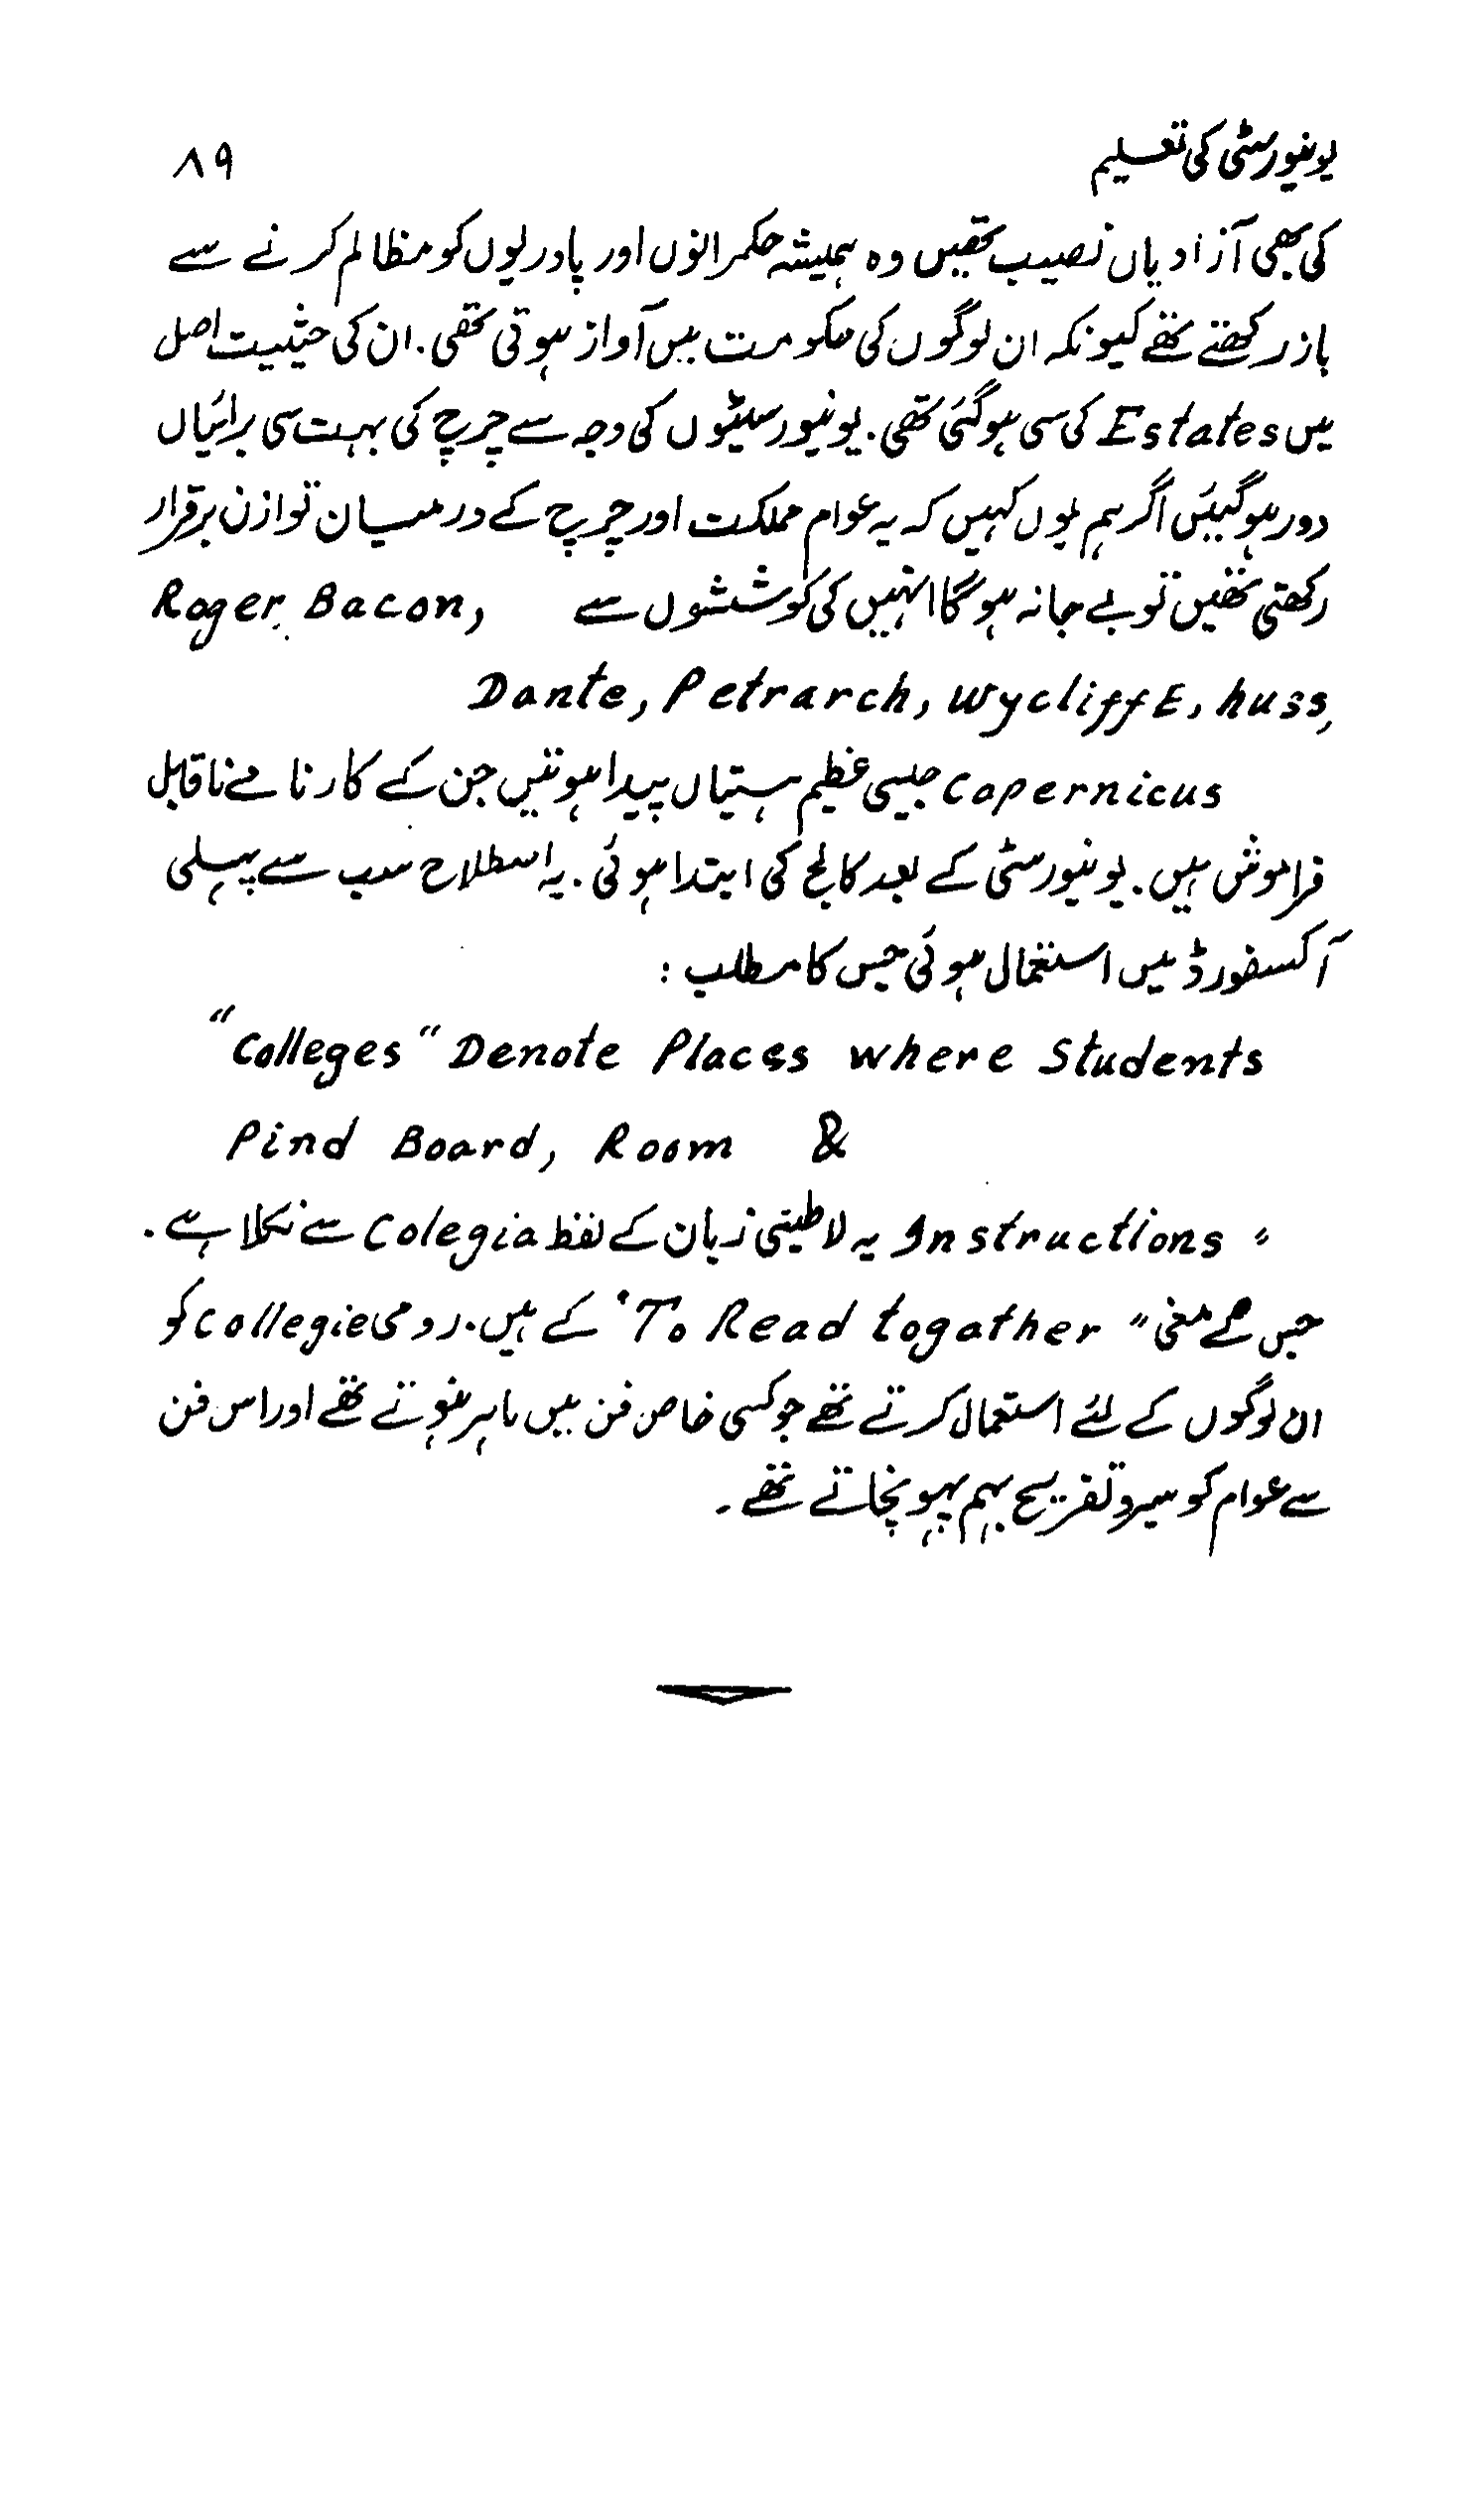 یونیورسٹی کی تعلیم ۸۹
کی بھی آزادیاں نصیب تھیں وہ ہمیشہ حکمرانوں اور پادریوں کو مظالم کرنے سے
باز رکھتے تھے کیونکہ ان لوگوں کی حکومت میں آواز ہوتی تھی. ان کی حیثیت اصل
میں Estates کی سی ہوگئی تھی. یونیورسیٹوں کی وجہ سے چرچ کی بہت سی برائیاں
دور ہوگیئں اگر ہم یوں کہیں کہ یہ عوام مملکت اور چرچ کے درمیان توازن برقرار
رکھتی تھیں تو بے جانہ ہوگا انہیں کی کوششوں سے Roger Bacon,
Dante, Petrarch, WycliffE, huss,
copernicus جیسی عظیم ہستیاں پیدا ہوئیں جن کے کارنامے ناقابل
فراموش ہیں. یونیورسٹی کے بعد کالج کی ابتدا ہوئی. یہ اصطلاح سب سے پہلی
آکسفورڈ میں استعمال ہوئی جس کا مطلب :
"Colleges" Denote Places where Students
Pind Board, Room &
" Instructions یہ لاطینی زبان کے لفظ Colegia سے نکلا ہے.
جس کے معنی "To Read togather' کے ہیں. رومی Collegie کو
ان لوگوں کے لئے استعمال کرتے تھے جو کسی خاص فن میں ماہر ہوتے تھے اور اس فن
سے عوام کو سیروتفریح بہم پہونچاتے تھے.